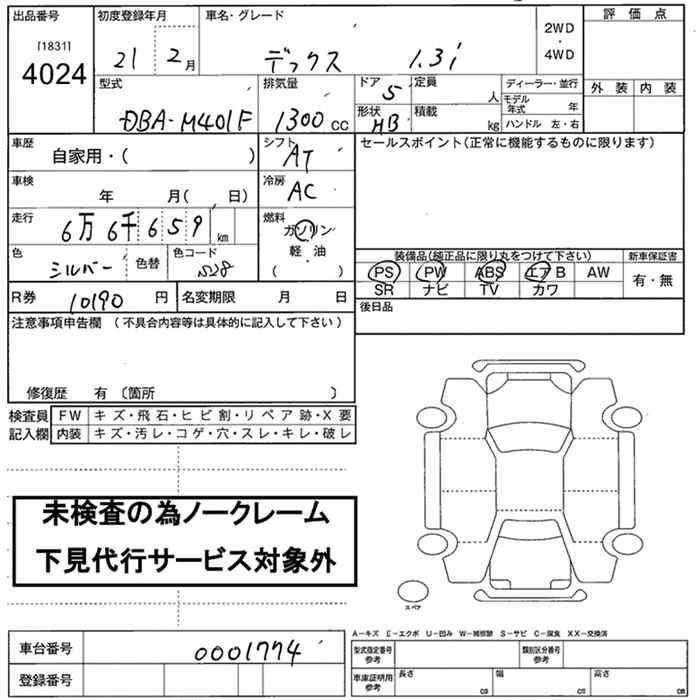 出品番号 初度登録年月 車名・グレード 評価点
[1831] 4024
21年 2月 デックス 1.3i 2WD・4WD
外装 内装
型式 排気量 ドア 定員 ディーラー・並行
DBA-M401F 1300cc 5 人 モデル年式 年
形状 積載
HB kg ハンドル 左・右
車歴 シフト セールスポイント(正常に機能するものに限ります)
自家用・( ) AT
車検 冷房
年 月( 日) AC
走行 燃料
6万6千659 km ガソリン
軽・油
( )
色 色替 色コード
シルバー S28
装備品(純正品に限り丸をつけて下さい) 新車保証書
PS PW ABS エアB AW 有・無
SR ナビ TV カワ
R券 10190円 名変期限 月 日 後日品
注意事項申告欄 (不具合内容等は具体的に記入して下さい)
修復歴 有 〔箇所 〕
検査員 FW キズ・飛石・ヒビ割・リペア跡・X要
記入欄 内装 キズ・汚レ・コゲ・穴・スレ・キレ・破レ
未検査の為ノークレーム
下見代行サービス対象外
スペア
A-キズ E-エクボ U-凹み W-補修跡 S-サビ C-腐食 XX-交換済
車台番号 0001774 型式指定番号 参考 類別区分番号 参考
登録番号 車庫証明用 参考 長さ cm 幅 cm 高さ cm